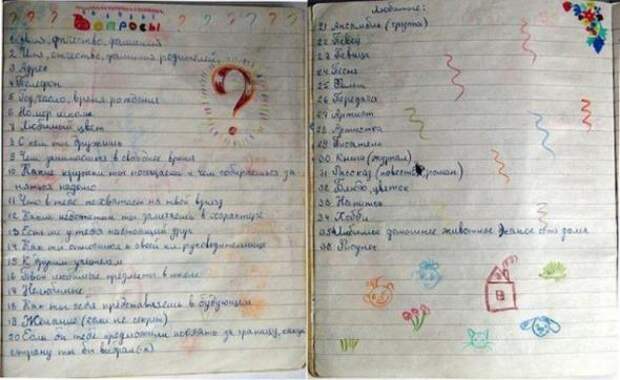 Вопросы
1 Имя, отчество, фамилия
2 Имя, отчество, фамилия родителей
3 Адрес
4 Телефон
5 Год, число, время рождения
6 Номер школы
7 Любимый цвет
8 С кем ты дружишь
9 Чем занимаешься в свободное время
10 Какие кружки ты посещаешь и чем собираешься за
няться надолго
11 Что в тебе не хватает на твой взгляд
12 Какие недостатки ты замечаешь в характере
13 Есть ли у тебя настоящий друг
14 Как ты относишься к своей кл. руководительнице
15 К другим учителям
16 Твои любимые предметы в школе
17 Нелюбимые
18 Как ты себя представляешь в будущем
19 Желания (если не секрет)
20 Если бы тебе предложили поехать за границу, какую
страну ты бы выбрал(а)
Любимые:
21 Ансамбль (группа)
22 Певец
23 Певица
24 Песня
25 Фильм
26 Передача
27 Артист
28 Артистка
29 Писатель
30 Книга (журнал)
31 Рассказ (повесть, роман)
32 Блюдо, цветок
33 Напиток
34 Хобби
35 Любимое домашнее животное
36